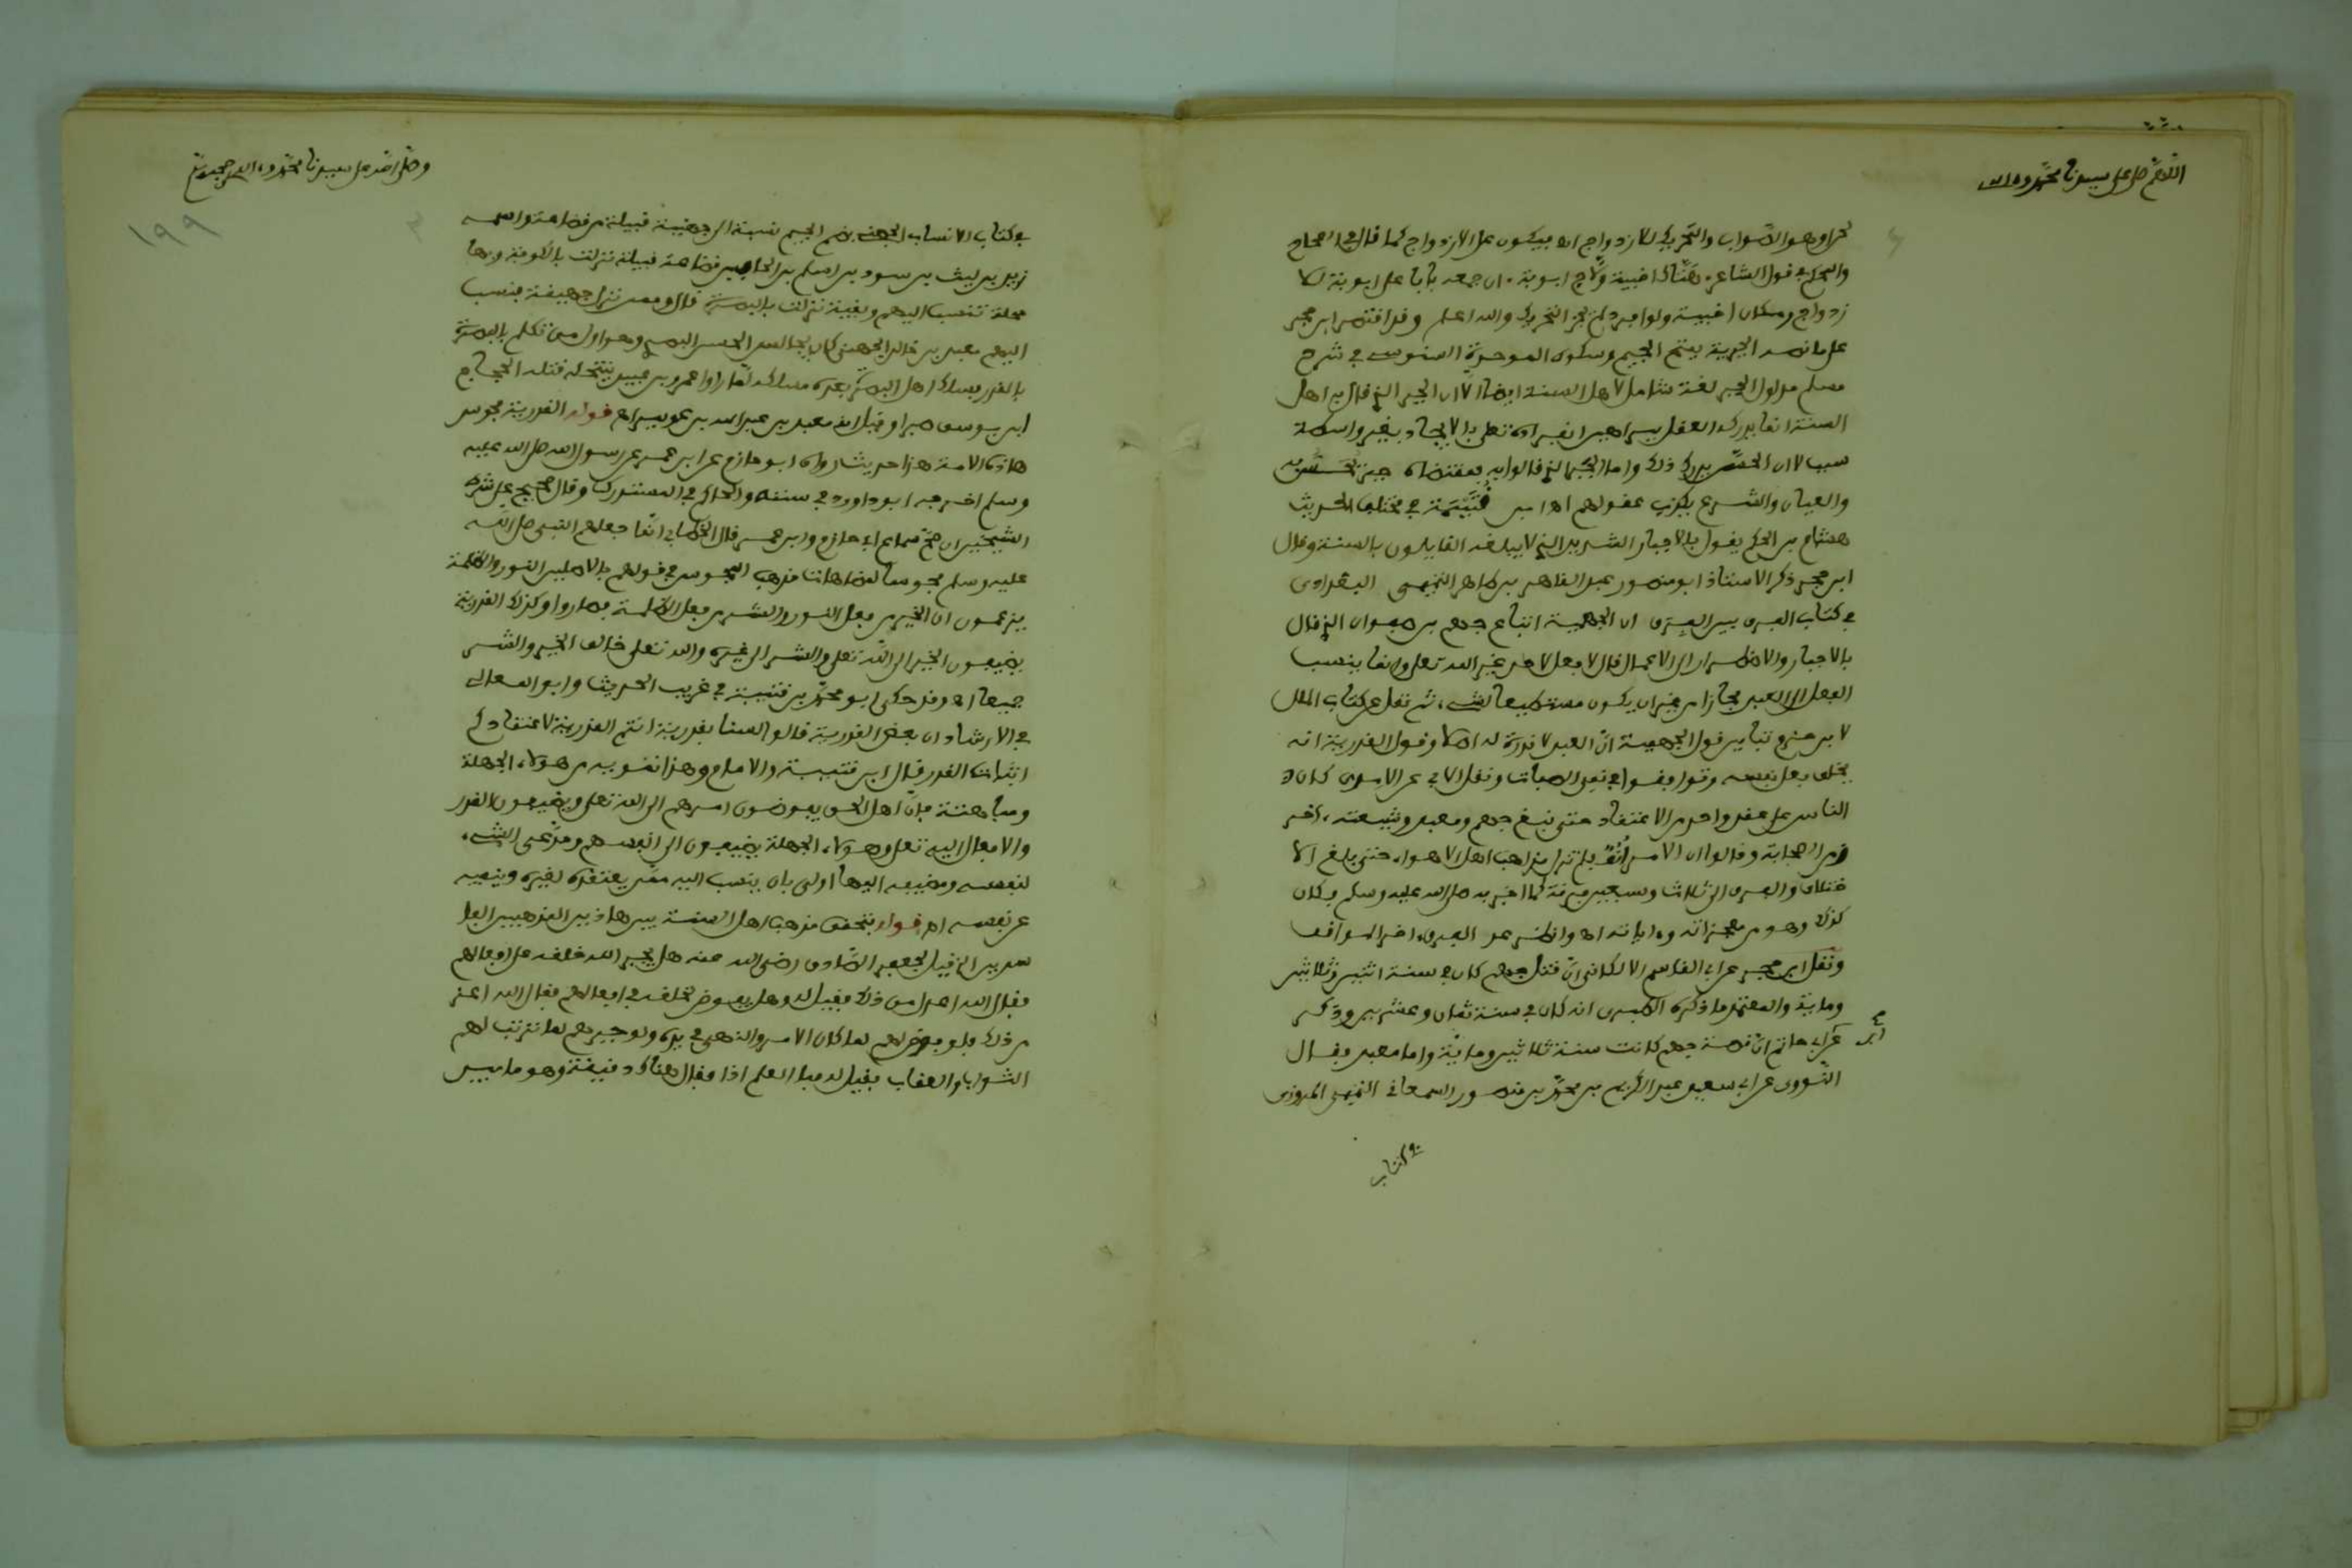 اللهم صل على سيدنا محمد وءاله
لحن او هو الصواب والتحريك للازدواج اه فيكون على الازدواج كما قال في الصحاح
والمحكم في قول الشاعر هتاك اخبية ولاج ابوبة ان جمعه بابا على ابوبة للا
زدواج ومكان اخبية ولو افرد لم يجز التحريك والله اعلم وقد اقتصر ابن حجر
على ما نصه الجبرية بفتح الجيم وسكون الموحدة السنوسي في شرح
مسلم مدلول الجبر لغة شامل لاهل السنة ايضا لان الجبر الذي قال به اهل
السنة انما يدركه العقل ببراهين انفراده تعلى بالايجاد بغير واسطة
سبب لان الحس يدرك ذلك واما الجبر الذي قالوا به بمقتضاه جبر تحس به
والعيان والشرع يكذب عقولهم اه ابن قتيبة في مختلف الحديث
هشام بن الحكم يقول بالاجبار الشديد الذي لا يبلغه القايلون بالسنة وقال
ابن حجر ذكر الاستاذ ابو منصور عبد القاهر بن طاهر التميمي البغدادي
في كتاب الفرق بين الفرق ان الجهمية اتباع جهم بن صفوان الذي قال
بالاجبار والاضطرار الى الاعمال قال لا فعل لاحد غير الله تعلى وانما ينسب
الفعل الى العبد مجازا من غير ان يكون مستطيعا لشيء ثم نقل عن كتاب الملل
لابن حزم تباين قول الجهمية ان العبد لا قدرة له اصلا وقول القدرية انه
يخلق فعل نفسه وتوافقوا في نفي الصفات ونقل الابي عن الامدي كان
الناس على عقد واحد من الاعتقاد حتى نبغ جهم ومعبد وشيعته ءاخر
زمن الصحابة وقالوا ان الامر انف فلم تزل مذاهب اهل الاهواء حتى بلغ الا
ختلاف والفرق الى ثلاث وسبعين فرقة كما اخبر به صلى الله عليه وسلم فكان
كذلك وهو من معجزاته وءاياته اه وانظر عد الفرق ءاخر المواقف
ونقل ابن حجر عن ابي القاسم الالكائي ان قتل جهم كان في سنة اثنين وثلاثين
وماية والمعتمد ما ذكره الطبري انه كان في سنة ثمان وعشرين وذكر
عن ابي حاتم ان قصة جهم كانت سنة ثلاثين وماية واما معبد فقال
النووي عن ابي سعيد عبد الكريم بن محمد بن منصور السمعاني التميمي المروزي
في كتاب
وصلى الله على سيدنا محمد وءاله وصحبه وسلم
١٩٩
في كتاب الانساب الجهني بضم الجيم نسبة الى جهينة قبيلة من قضاعة واسمه
زيد بن ليث بن سود بن اسلم بن الحاف بن قضاعة قبيلة نزلت بالكوفة وبها
محلة تنسب اليهم وبقية نزلت بالبصرة قال وممن نزل جهينة فنسب
اليهم معبد بن خالد الجهني كان يجالس الحسن البصري وهو اول من تكلم بالبصرة
بالقدر فسلك اهل البصرة بعده مسلكه لما راوا عمرو بن عبيد ينتحله قتله الحجاج
ابن يوسف صبرا وقيل انه معبد بن عبد الله بن عويمر اه قوله القدرية مجوس
هاذه الامة هذا حديث رواه ابو حازم عن ابن عمر عن رسول الله صلى الله عليه
وسلم اخرجه ابو داوود في سننه والحاكم في المستدرك وقال صحيح على شرط
الشيخين ان صح سماع ابي حازم من ابن عمر قال الخطابي انما جعلهم النبي صلى الله
عليه وسلم مجوسا لمضاهات مذهب المجوس في قولهم بالاصلين النور والظلمة
يزعمون ان الخير من فعل النور والشر من فعل الظلمة فصاروا وكذلك القدرية
يضيفون الخير الى الله تعلى والشر الى غيره والله تعلى خالق الخير والشر
جميعا اه وقد حكى ابو محمد بن قتيبة في غريب الحديث وابو المعالي
في الارشاد ان بعض القدرية قالوا لسنا بقدرية انتم القدرية لاعتقادكم
اثبات القدر قال ابن قتيبة والامام وهذا تمويه من هؤلاء الجهلة
ومباهتة فان اهل الحق يفوضون امرهم الى الله تعلى ويضيفون القدر
والافعال اليه تعلى وهؤلاء الجهلة يضيفون الى انفسهم ومدعي الشيء
لنفسه ومضيفه اليها اولى بان ينسب اليه ممن يعتقده لغيره وينفيه
عن نفسه اه قوله يتحقق مذهب اهل السنة بين هاذين المذهبين الفا
سدين الخ قيل لجعفر الصادق رضي الله عنه هل يجبر الله خلقه على افعالهم
فقال الله اعدل من ذلك فقيل له وهل يفوض لخلقه في افعالهم فقال الله اعز
من ذلك فلو فوض لهم لما كان الامر والنهي في يده ولو جبرهم لما ترتب لهم
الثواب او العقاب فقيل له فما العلم اذا فقال هناك دقيقة وهو ما بين